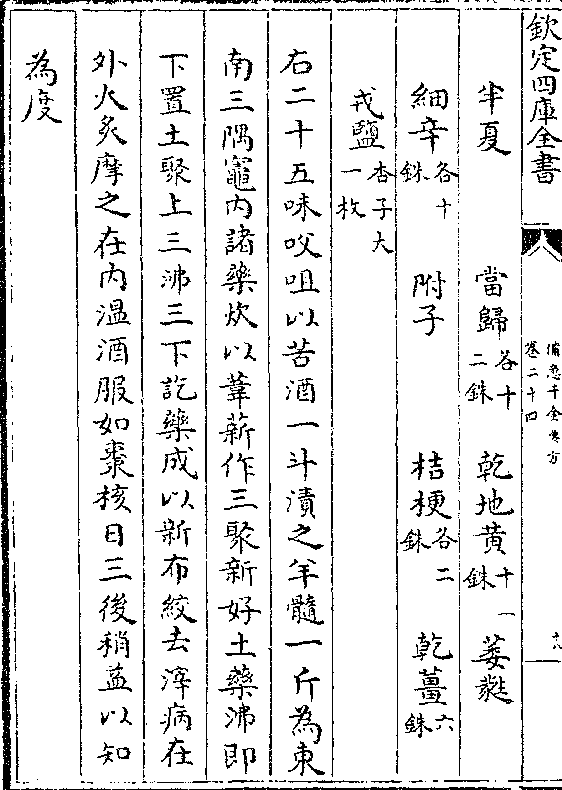 欽定四庫全書
備急千金要方
卷二十四
十八
半夏 當歸各十二銖 乾地黄十一銖 萎蕤
細辛各十銖 附子 桔梗各二銖 乾薑六銖
戎鹽杏子大一枚
右二十五味㕮咀以苦酒一斗漬之羊髓一斤為東
南三隅竈内諸藥炊以葦薪作三聚新好土藥沸即
下置土聚上三沸三下訖藥成以新布絞去滓病在
外火炙摩之在内温酒服如棗核日三後稍益以知
為度